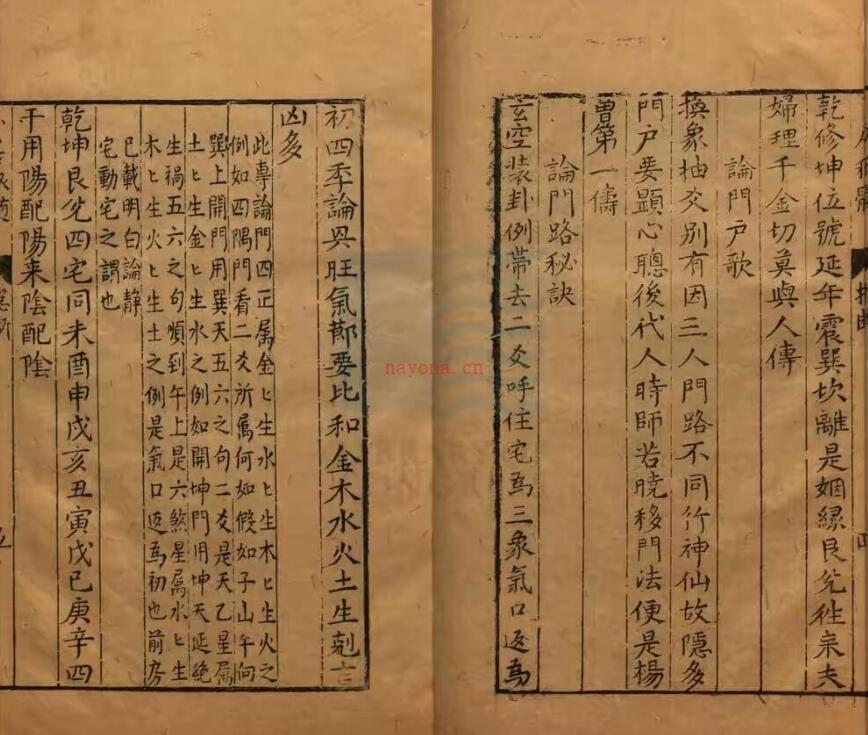 乾修坤位號延年震巽坎離是姻緣艮兊徃来夫
婦理千金切莫與人傳
論門户歌
換象抽爻别有因三人門路不同行神仙故隱多
門户要顯心聰後代人時師若曉移門法便是楊
曽第一儔
論門路秘訣
玄空装卦例帶去二爻呼住宅為三象氣口返為
初四季論興旺氣節要比和金木水火土生剋言
凶多
此專論門四正属金匕生水匕生木匕生火之
例如四隅門看二爻所属何如假如子山午向
巽上開門用巽天五六之句二爻是天乙星属
土匕生金匕生水之例如開坤門用坤天延絶
生禍五六之句順到午上是六煞星属水匕生
木匕生火匕生土之例是氣口返為初也前夯
已載明白論静
宅動宅之謂也
乾坤艮兊四宅同未酉申戌亥丑寅戊己庚辛四
干用陽配陽来陰配陰
nayona.cn